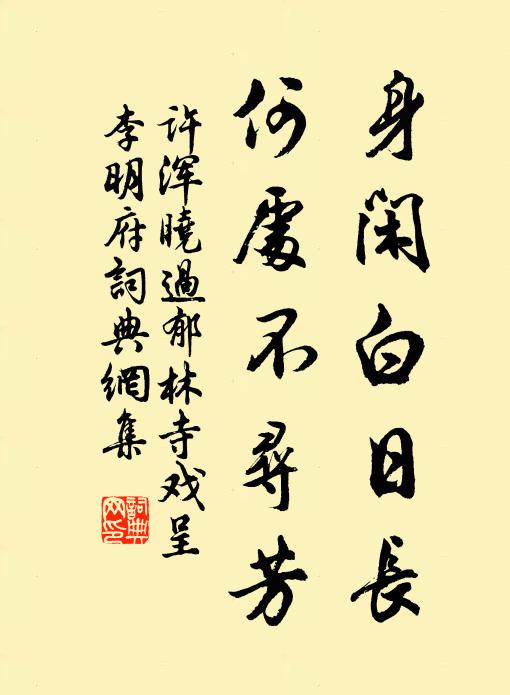 身閑白日長
何處不尋芳
许浑曉過郁林寺戏呈
李明府詞典網集
詞典
网印